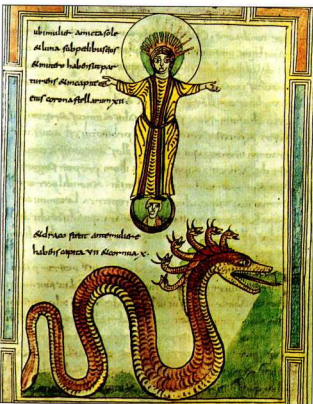 ubi mulier amicta sole
& luna sub pedibus eius
& in utero habens & par
turiens & in capite
eius corona stellarum xii.
& draco stetit ante mulierē
habens capita vii & cornua x.